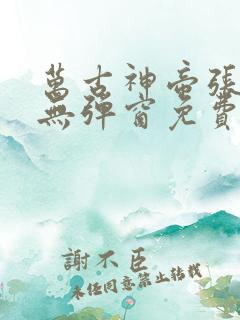 萬古神帝張
無彈窗免費
謝不臣
未經同意禁止轉載